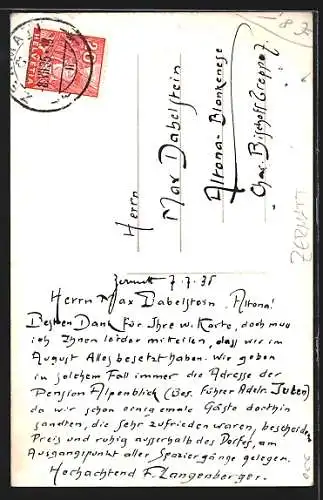 ZERMATT
20
HELVETIA
Herrn
Max Dabelstein
Altona-Blankenese
Char. Bischoff
ZERMATT
Zermatt 7.7.35
Herrn Max Dabelstein, Altona!
Besten Dank für Ihre w. Karte, doch muss
ich Ihnen leider mitteilen, dass wir im
August Alles besetzt haben. Wir geben
in solchem Fall immer die Adresse der
Pension Alpenblick (Bes. Führer Adelr. Juten)
da wir schon einigemale Gäste dorthin
sandten, die sehr zufrieden waren, bescheiden
Preis und ruhig ausserhalb des Dorfes, am
Ausgangspunkt aller Spaziergänge gelegen.
Hochachtend F. Langenberger.